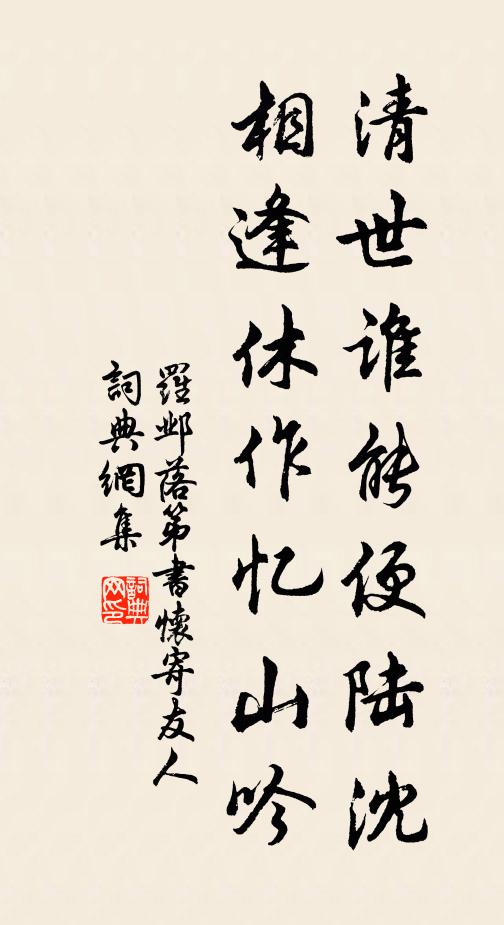 清世谁能便陆沈
相逢休作忆山吟
羅邺落第書懷寄友人
詞典網集
詞典网印